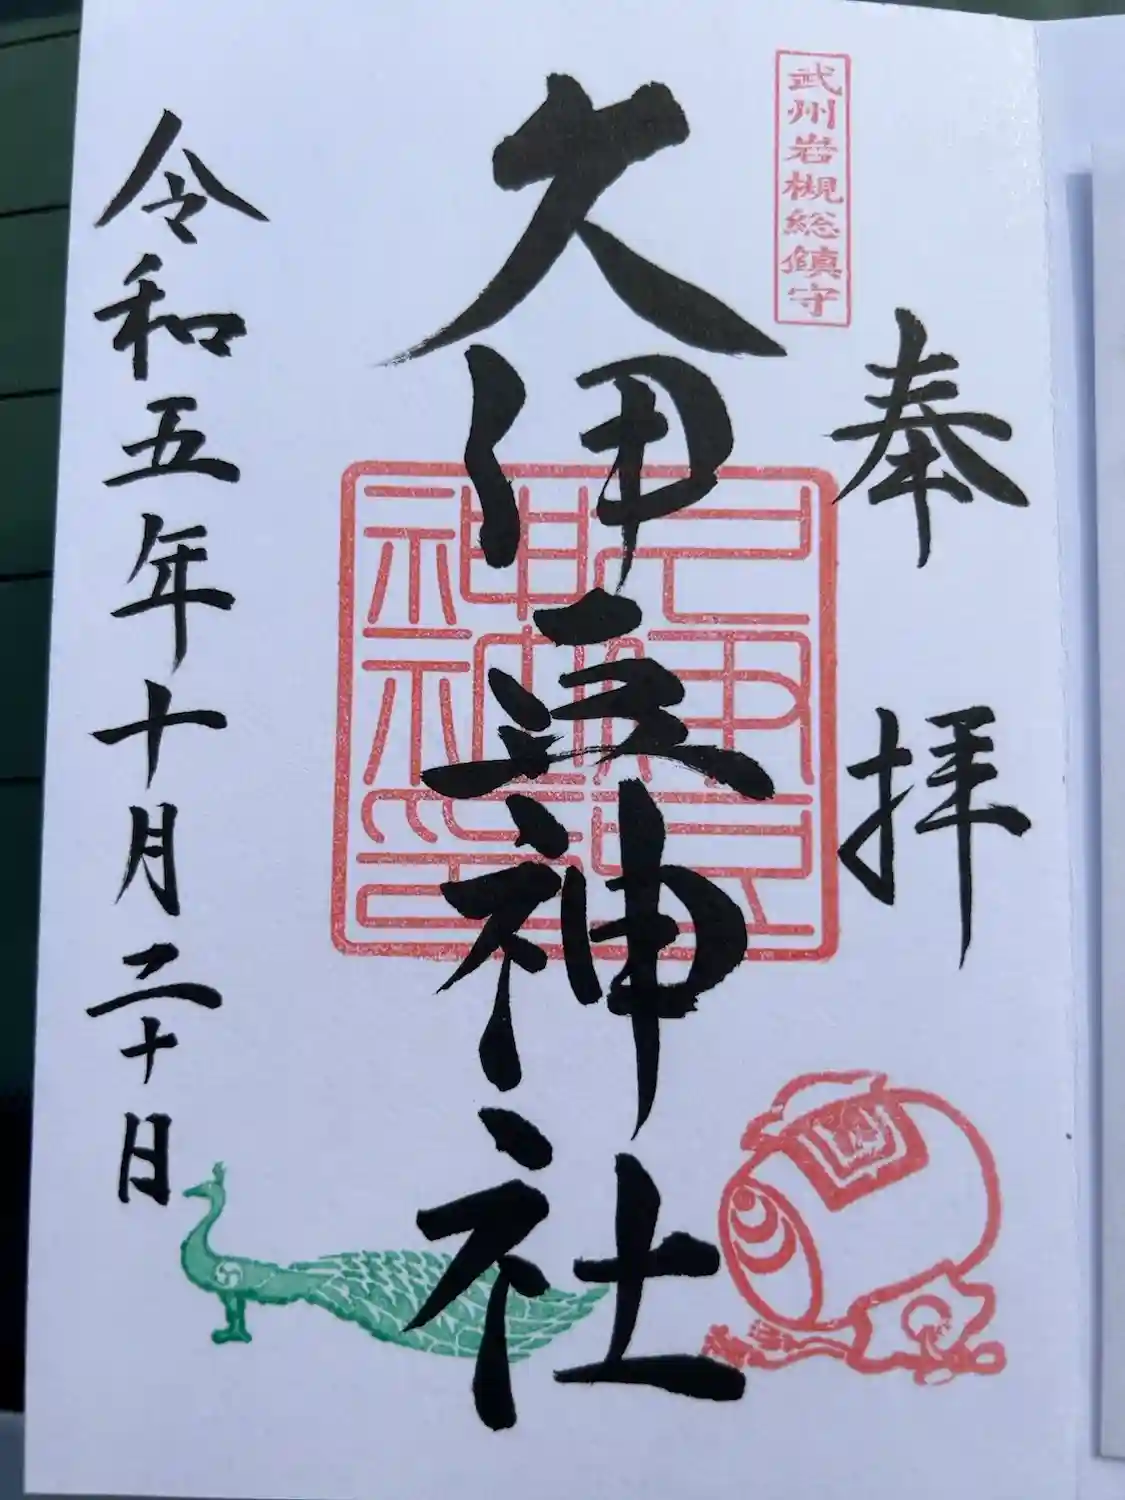 武州岩槻総鎮守
奉拝
久伊豆神社
令和五年十月二十日